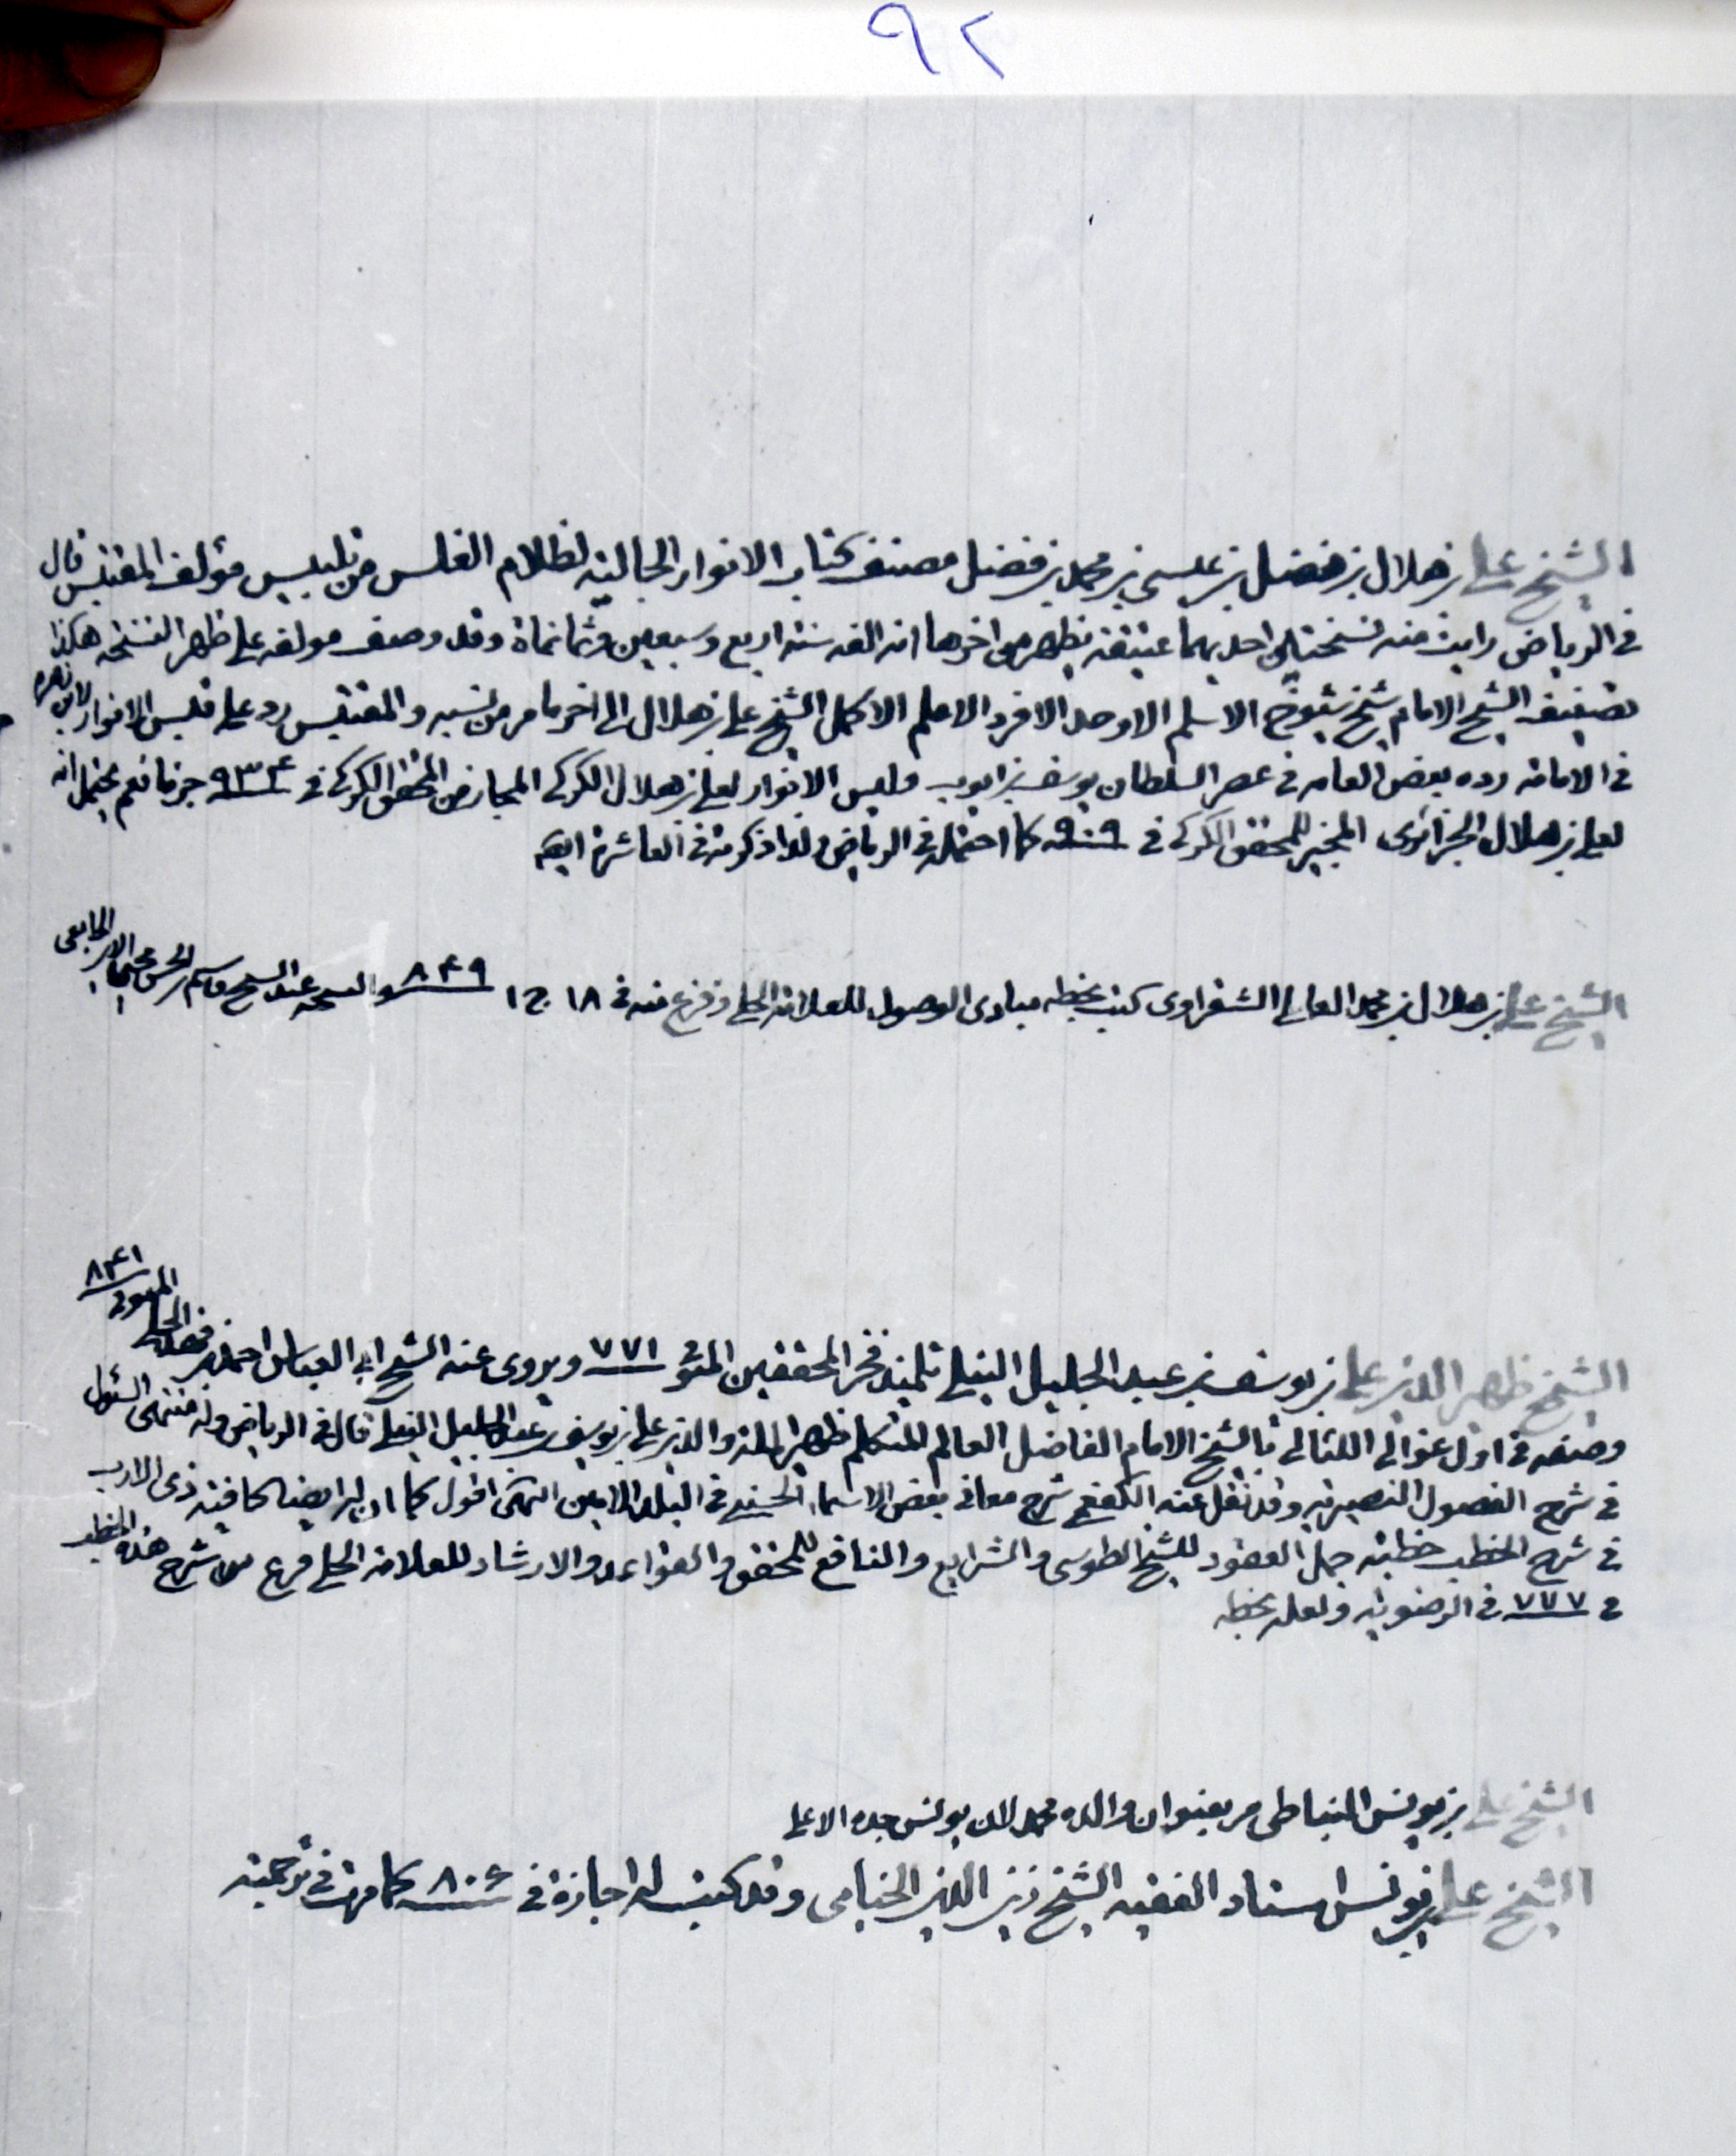 ٩٢
الشيخ علي بن هلال بن فضل بن عيسى بن محمد بن فضل مصنف كتاب الانوار الجالية لظلام الغلس من تلبيس مؤلف المقتبس قال
في الرياض رايت منه نسختين احديهما عتيقة يظهر من اخرها انه الفه سنة اربع وسبعين وثمانماة وقد وصف مولفه على ظهر النسخة هكذا
تصنيف الشيخ الامام شيخ شيوخ الاسلم الاوحد الافرد الاعلم الاكمل الشيخ علي بن هلال الى اخر ما مر من نسبه والمقتبس رد على قبس الانوار لابن زهره
في الامامة رده بعض العامه في عصر السلطان يوسف بن ايوب وليس الانوار لعلي بن هلال الكركي المجاز من المحقق الكركي في ٩٣٤ جزما نعم يحتمل انه
لعلي بن هلال الجزائري المجيز للمحقق الكركي في ٩٠٩ كما احتمله في الرياض ولذا ذكرته في العاشرة ايضه
الشيخ علي بن هلال بن محمد العالي الشقراوى كتب بخطه مبادى الوصول للعلامة الحلي وفرغ منه في ١٨ ج١ ٨٤٩ والنسخه عند الشيخ قاسم بن الحسن محيى الدين الجامعى
الشيخ ظهير الدين علي بن يوسف بن عبد الجليل النيلي تلميذ فخر المحققين المتو ٧٧١ ويروى عنه الشيخ ابي العباس احمد بن فهد الحلي المتوفى ٨٤١
وصفه في اول عوالى اللئالى با الشيخ الامام الفاضل العالم المتكلم ظهير الملة والدين علي بن يوسف بن عبد الجليل النيلي قال في الرياض وله منتهى السئول
في شرح الفصول النصيرية وقد نقل عنه الكفعمي شرح معاني بعض الاسماء الحسنى في البلد الامين انتهى اقول كما ان له ايضا كافية ذى الارب
في شرح الخطب خطبة جمل العقود للشيخ الطوسى والشرايع والنافع للمحقق والقواعد والارشاد للعلامة الحلي فرغ من شرح هذه الخطب
في ٧٧٧ في الرضوية ولعله بخطه
الشيخ علي بن يونس النباطى مر بعنوان والده محمد لان يونس جده الاعلى
الشيخ علي بن يونس استاد الفقيه الشيخ زين الدين الخيامى وقد كتب له اجازة في ٨٠٦ كما مرت في ترجمته